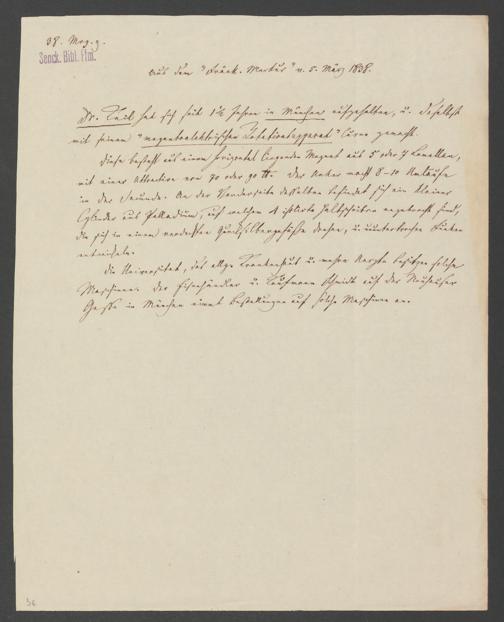 38. Mrg. g.
Senck. Bibl. Ffm.
aus dem "Fränk. Merkur" v. 5. März 1838.
Dr. Keil hat sich seit 1½ Jahren in München aufgehalten, u. daselbst
mit seinem "magnetoelektrischen Rotationsapparat" Curen gemacht.
Dieser besteht aus einem horizontal liegenden Magnet aus 5 oder 7 Lamellen,
mit einer Attraction von 70 oder 90 ℔. Der Anker macht 8-10 Umläufe
in der Secunde. An der Vorderseite desselben befindet sich ein kleiner
Cylinder aus Palladium, auf welchem 4 isolirte Halbscheiben angebracht sind,
die sich in einem verdeckten Quecksilbergefäße drehen, u. ununterbrochen Funken
entwickeln.
Die Universität, das allg. Krankenhaus u. mehre Aerzte besitzen solche
Maschinen. Der Eisenhändler u. Kaufmann Schmidt auf der Neuhauser
Gasse in München nimmt Bestellungen auf solche Maschinen an.